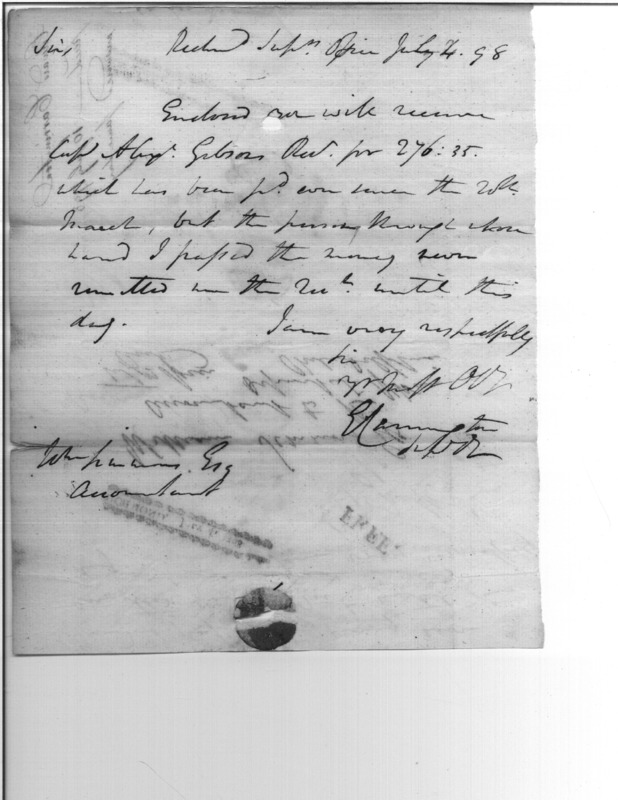 Sir, Richmd Suprs Office July 4. 98
Enclosed you will receive
Capt Alexr. Gibsons Rect. for 276:35.
which has been pd. ever since the 20th
March, but the person, through whose
hand I passed the money never
remitted me the rect. until this
day. I am very respectfully
Sir
yr Obt
E Carrington
Wm Simmons Esq
Accountant
FREE